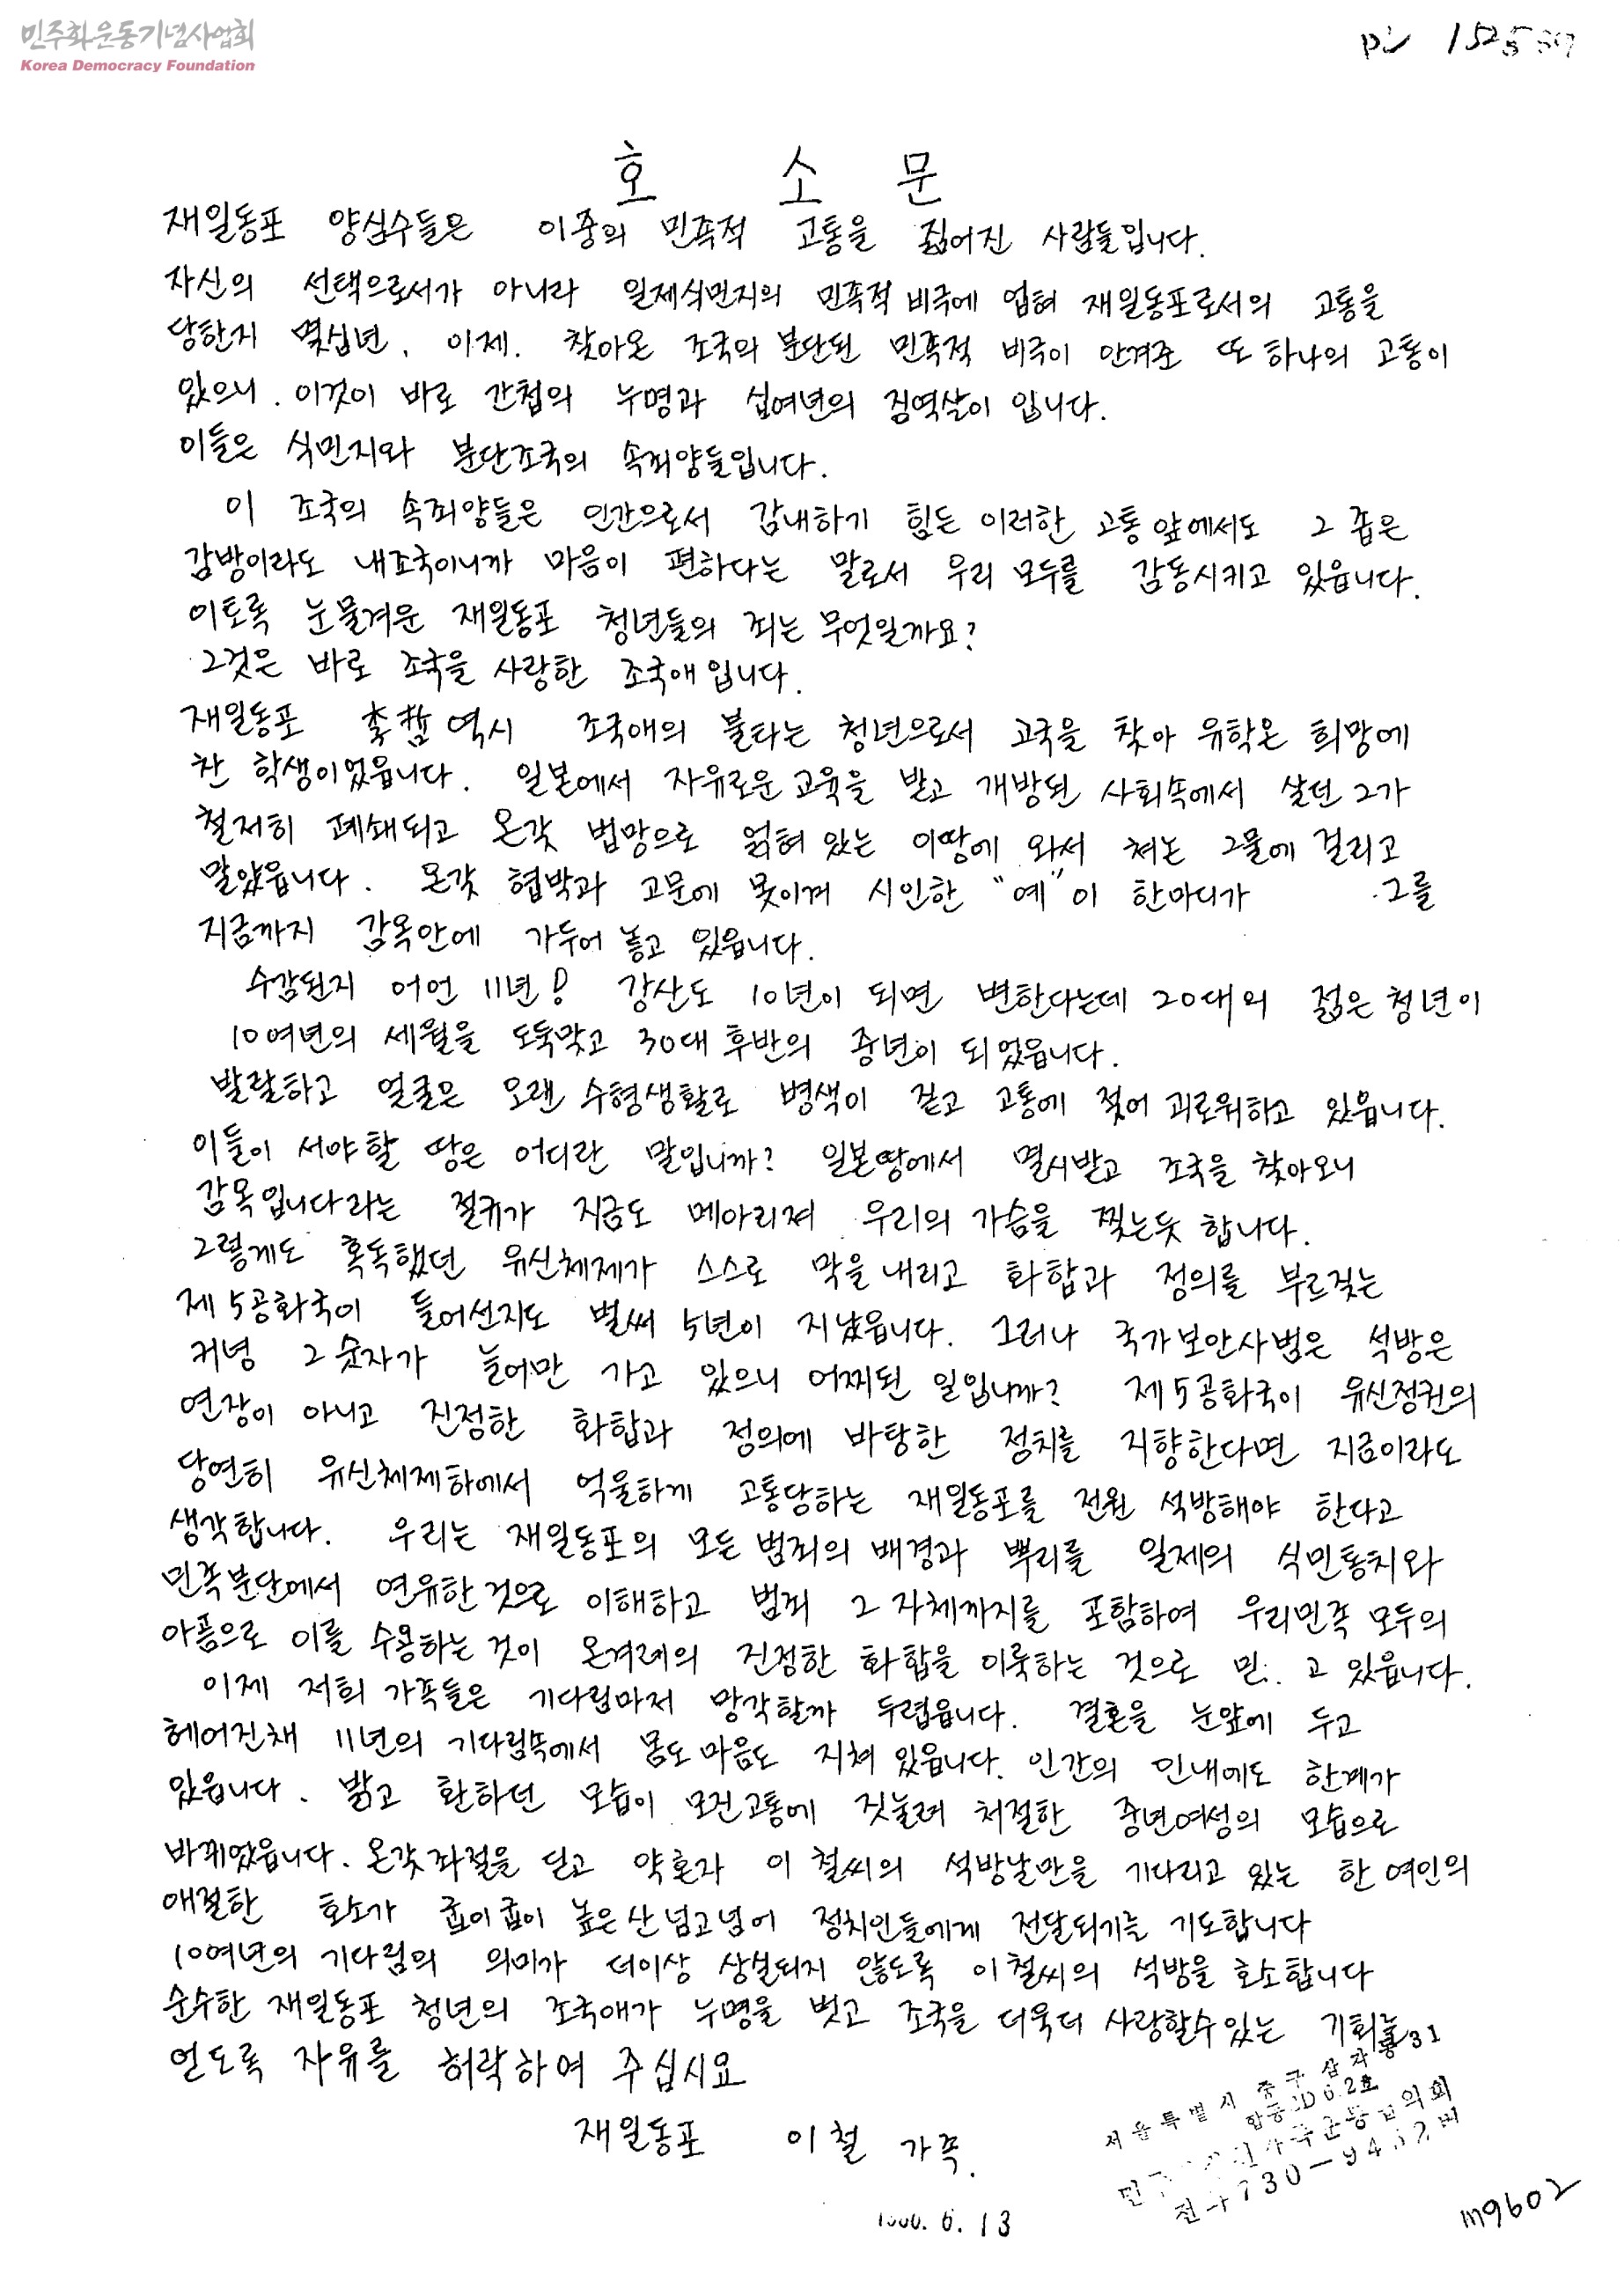 민주화운동기념사업회
Korea Democracy Foundation
호 소 문
재일동포 양심수들은 이중의 민족적 고통을 짊어진 사람들입니다.
자신의 선택으로서가 아니라 일제식민지의 민족적 비극에 업혀 재일동포로서의 고통을
당한지 몇십년, 이제. 찾아온 조국의 분단된 민족적 비극이 안겨준 또 하나의 고통이
있으니. 이것이 바로 간첩의 누명과 십여년의 징역살이 입니다.
이들은 식민지와 분단조국의 속죄양들입니다.
이 조국의 속죄양들은 인간으로서 감내하기 힘든 이러한 고통 앞에서도 그 좁은
감방이라도 내조국이니까 마음이 편하다는 말로서 우리 모두를 감동시키고 있읍니다.
이토록 눈물겨운 재일동포 청년들의 죄는 무엇일까요?
그것은 바로 조국을 사랑한 조국애입니다.
재일동포 李哲 역시 조국애의 불타는 청년으로서 고국을 찾아 유학온 희망에
찬 학생이었읍니다. 일본에서 자유로운 교육을 받고 개방된 사회속에서 살던 그가
철저히 폐쇄되고 온갖 법망으로 얽혀 있는 이땅에 와서 쳐논 그물에 걸리고
말았읍니다. 온갖 협박과 고문에 못이겨 시인한 "예" 이 한마디가 그를
지금까지 감옥안에 가두어 놓고 있읍니다.
수감된지 어언 11년! 강산도 10년이 되면 변한다는데 20대의 젊은 청년이
10여년의 세월을 도둑맞고 30대 후반의 중년이 되었읍니다.
발랄하고 얼굴은 오랜 수형생활로 병색이 짙고 고통에 젖어 괴로워하고 있읍니다.
이들이 서야할 땅은 어디란 말입니까? 일본땅에서 멸시받고 조국을 찾아오니
감옥입니다라는 절규가 지금도 메아리져 우리의 가슴을 찢는듯 합니다.
그렇게도 혹독했던 유신체제가 스스로 막을 내리고 화합과 정의를 부르짖는
제5공화국이 들어선지도 벌써 5년이 지났읍니다. 그러나 국가보안사범은 석방은
커녕 그 숫자가 늘어만 가고 있으니 어찌된 일입니까? 제5공화국이 유신정권의
연장이 아니고 진정한 화합과 정의에 바탕한 정치를 지향한다면 지금이라도
당연히 유신체제하에서 억울하게 고통당하는 재일동포를 전원 석방해야 한다고
생각합니다. 우리는 재일동포의 모든 범죄의 배경과 뿌리를 일제의 식민통치와
민족분단에서 연유한것으로 이해하고 범죄 그 자체까지를 포함하여 우리민족 모두의
아픔으로 이를 수용하는 것이 온겨레의 진정한 화합을 이룩하는 것으로 믿고 있읍니다.
이제 저희 가족들은 기다림마저 망각할까 두렵읍니다. 결혼을 눈앞에 두고
헤어진채 11년의 기다림속에서 몸도 마음도 지쳐 있읍니다. 인간의 인내에도 한계가
있읍니다. 밝고 환하던 모습이 모진고통에 짓눌려 처절한 중년여성의 모습으로
바뀌었읍니다. 온갖좌절을 딛고 약혼자 이철씨의 석방날만을 기다리고 있는 한 여인의
애절한 호소가 굽이굽이 높은산 넘고넘어 정치인들에게 전달되기를 기도합니다
10여년의 기다림의 의미가 더이상 상실되지 않도록 이철씨의 석방을 호소합니다
순수한 재일동포 청년의 조국애가 누명을 벗고 조국을 더욱더 사랑할수있는 기회를
얻도록 자유를 허락하여 주십시요
재일동포 이철 가족.
6. 13
서울특별시 중구
730-9452
m9602